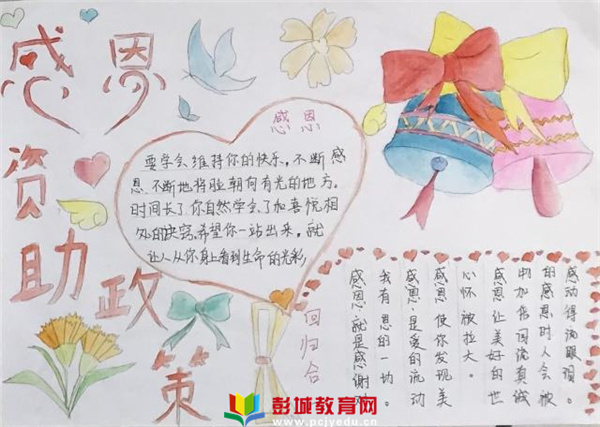 感恩
资
助政
策
感恩
要学会维持你的快乐,不断感
恩,不断地将脸朝向有光的地方。
时间长了,你自然学会了和喜悦相
处的诀窍,希望你一站出来,就
让人从你身上看到生命的光彩,
回归合
感恩·就是感谢对
我有恩的一切。
感恩·是爱的流动
感恩使你发现美
心怀被拉大。
感恩让美好的世
中加倍回流真诚
的感恩时人会被
感动得流眼泪。
彭城教育网
www.pcjyedu.cn